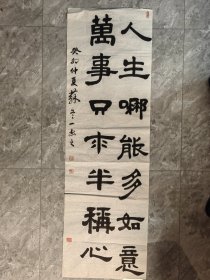 人生哪能多如意
萬事只求半稱心
癸卯仲夏蘇